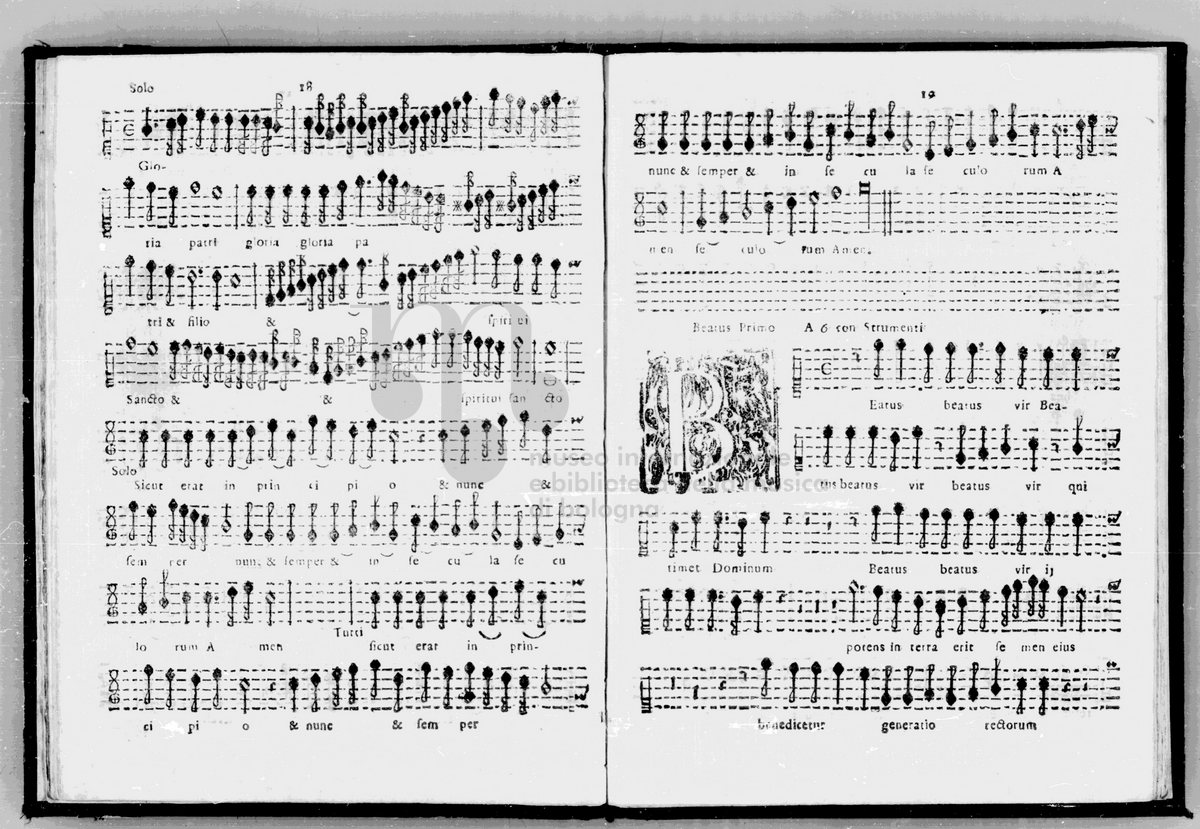 Solo
18
Glo-
ria patri gloria gloria pa
tri & filio & spiritui
Sancto & & spiritui san cto
Solo
Sicut erat in prin ci pi o & nunc &
sem per nunc & semper & in se cu la se cu
lo rum A men
Tutti
sicut erat in prin-
ci pi o & nunc & sem per
19
nunc & semper & in se cu la se culo rum A
men se culo rum Amen.
Beatus Primo A 6 con Strumenti
B
Eatus beatus vir Bea-
tus beatus vir beatus vir qui
timet Dominum Beatus beatus vir ij
potens in terra erit se men eius
benedicetur generatio rectorum
museo internazionale
e biblioteca della musica
di bologna